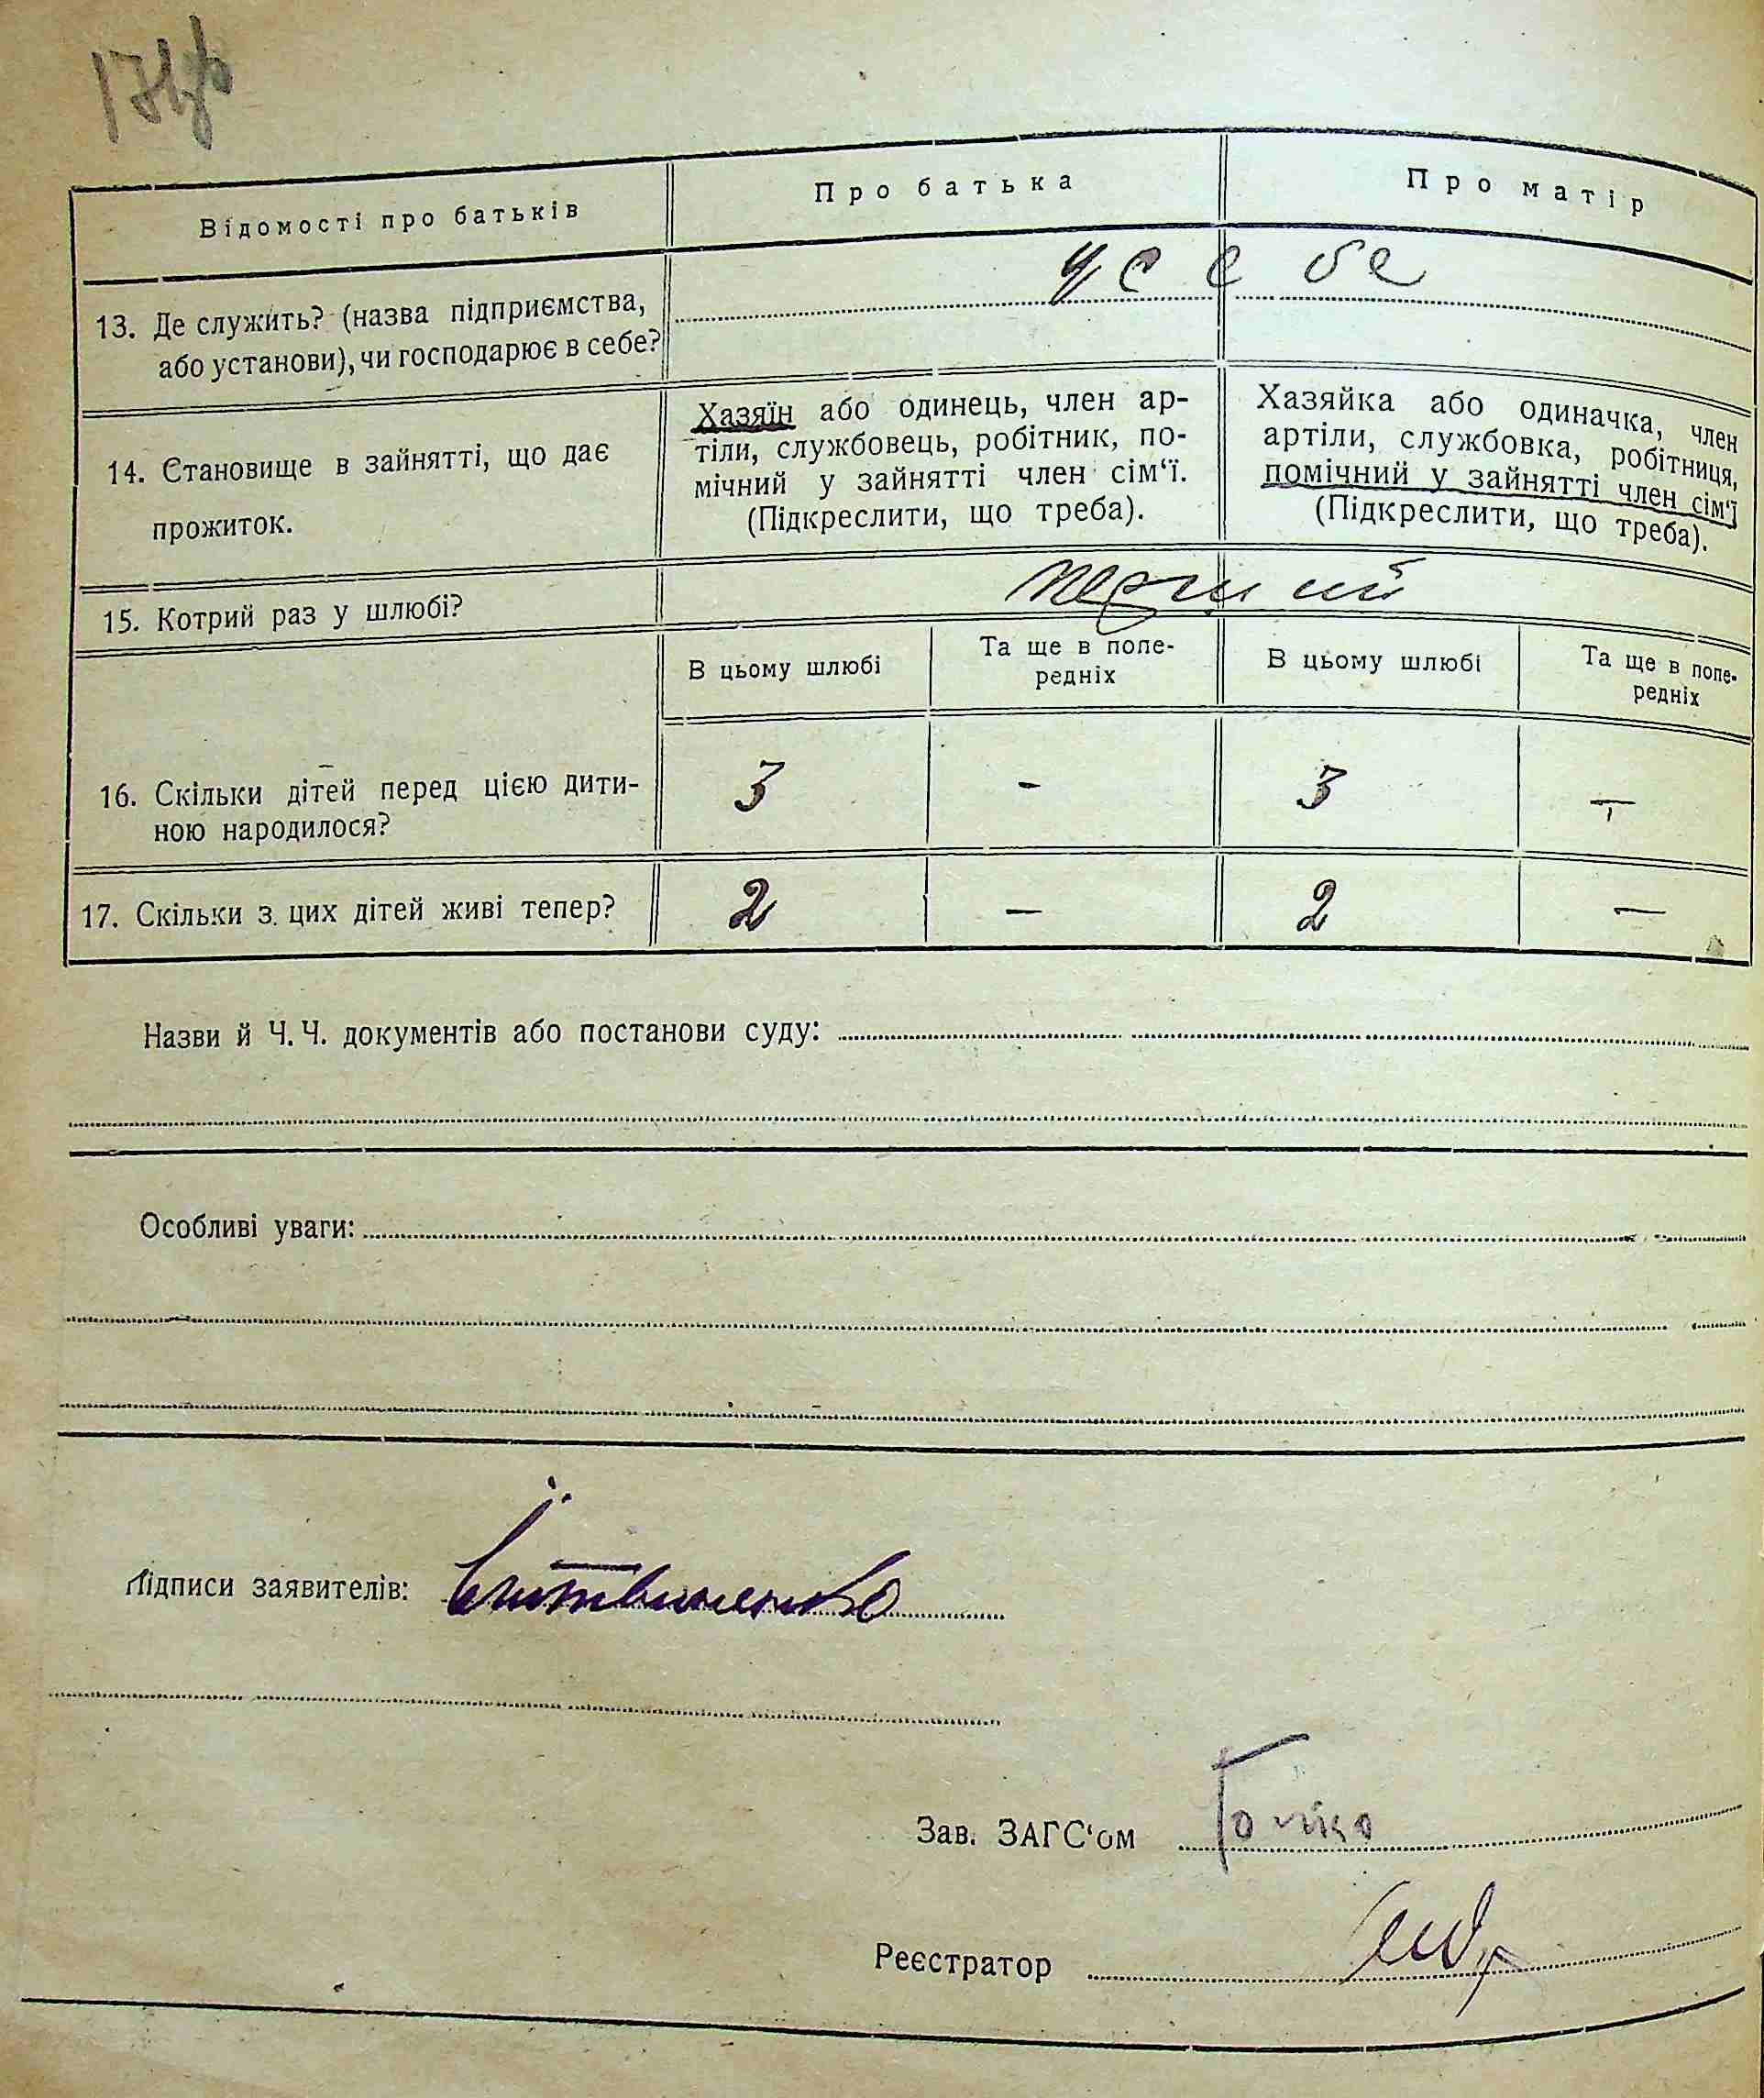 Відомості про батьків
Про батька
Про матір
13. Де служить? (назва підприємства,
або установи), чи господарює в себе?
у себе
14. Становище в зайнятті, що дає
прожиток.
Хазяїн або одинець, член ар-
тіли, службовець, робітник, по-
мічний у зайнятті член сім‘ї.
(Підкреслити, що треба).
Хазяйка або одиначка, член
артіли, службовка, робітниця,
помічний у зайнятті член сім‘ї
(Підкреслити, що треба).
15. Котрий раз у шлюбі?
перший
В цьому шлюбі
Та ще в попе-
редніх
В цьому шлюбі
Та ще в попе-
редніх
16. Скільки дітей перед цією дити-
ною народилося?
3 - 3 -
17. Скільки з цих дітей живі тепер?
2 — 2 —
Назви й Ч. Ч. документів або постанови суду:
Особливі уваги:
Підписи заявителів: Литвиненко
Зав. ЗАГС‘ом
Реєстратор